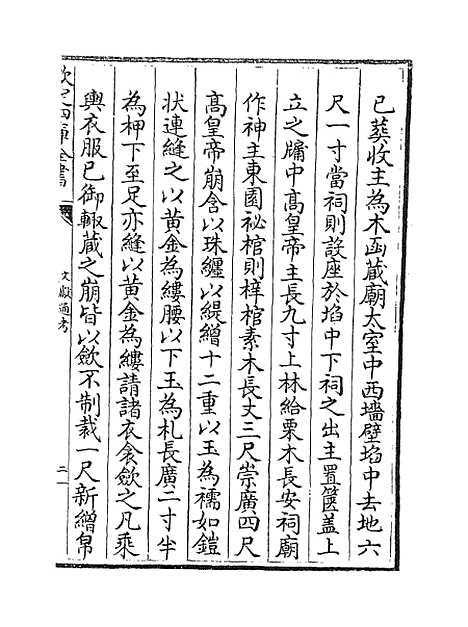 已葬收主為木函藏廟太室中西墻壁埳中去地六
尺一寸當祠則設座於埳中下祠之出主置篋蓋上
立之牖中高皇帝主長九寸上林給栗木長安祠廟
作神主東園祕棺則梓棺素木長丈三尺崇廣四尺
高皇帝崩含以珠纏以緹繒十二重以玉為襦如鎧
狀連縫之以黃金為縷腰以下玉為札長廣二寸半
為柙下至足亦縫以黃金為縷請諸衣衾斂之凡乘
輿衣服已御輙藏之崩皆以斂不制裁一尺新繒帛
欽定四庫全書
文獻通考